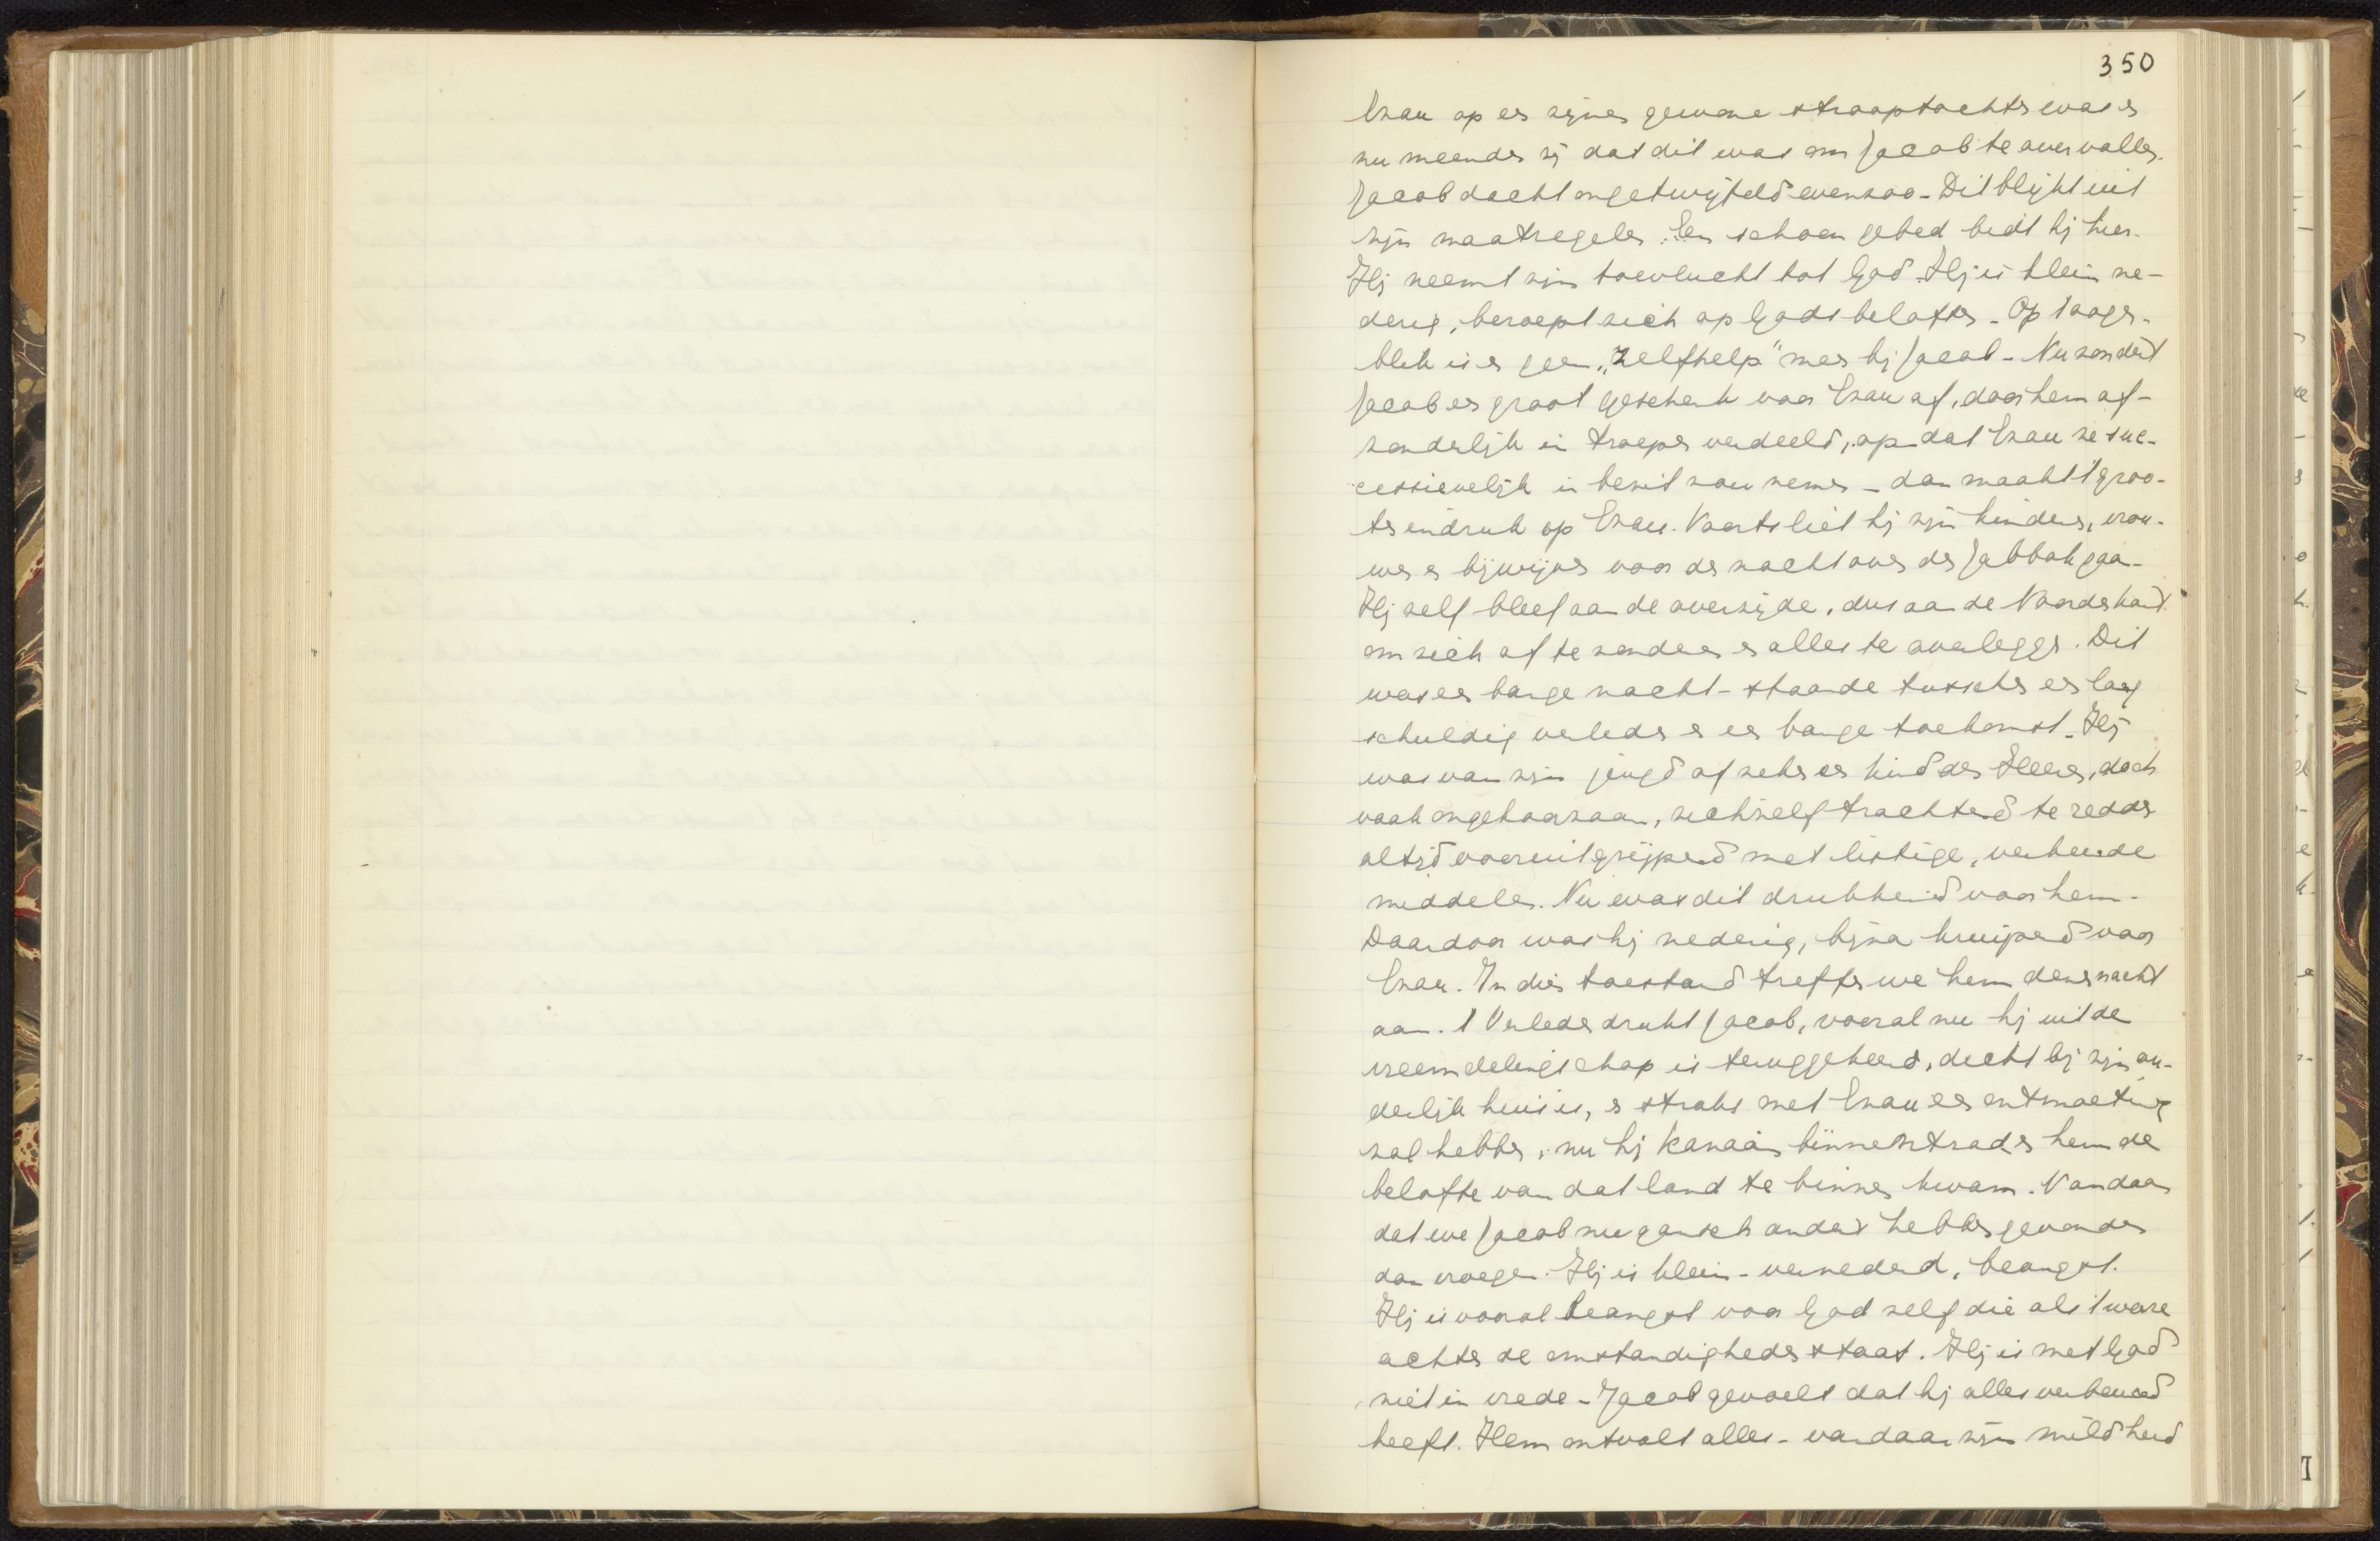 350
Ezau op een zijner gewone strooptochten was en
nu meenden zij dat dit was om Jacob te overvallen.
Jacob dacht ongetwijfeld evenzoo - Dit blijkt uit
zijn maatregelen. Een schoon gebed bidt hij hier.
Hij neemt zijn toevlucht tot God. Hij is klein ne-
derig, beroept zich op Gods beloften - Op 't oogen-
blik is er geen "Zelfhelp" meer bij Jacob - Nu zondert
Jacob een groot geschenk voor Ezau af, door hem af-
zonderlijk in troepen verdeeld, opdat Ezau ze suc-
cessievelijk in bezit zou nemen - dan maakt 't groo-
ten indruk op Ezau. Voorts liet hij zijn kinders, vrou-
wen en bijwijven voor de nacht over de Jabbok gaan -
Hij zelf bleef aan de overzijde, dus aan de Noordkant
om zich af te zonderen en alles te overleggen. Dit
was een bange nacht - staande tusschen een laag
schuldig verleden en een bange toekomst - Hij
was van zijn jeugd af zeker een kind des Heeren, doch
vaak ongehoorzaam, zichzelf trachtend te redden
altijd vooruitgrijpend met listige, verkeerde
middelen. Nu was dit drukkend voor hem -
Daardoor was hij nederig, bijna kruipend voor
Ezau. In dien toestand treffen we hem dezen nacht
aan. 't Verleden drukt Jacob, vooral nu hij uit de
vreemdelingschap is teruggekeerd, dicht bij zijn ou-
derlijk huis is, en straks met Ezau een ontmoeting
zal hebben, nu hij Kanaän binnentrad en hem de
belofte van dat land te binnen kwam. Vandaar
dat we Jacob nu gansch anders hebben gevonden
dan vroeger. Hij is klein - vernederd, beangst.
Hij is vooral beangst voor God zelf die als 't ware
achter de omstandigheden staat. Hij is met God
niet in vrede - Jacob gevoelt dat hij alles verbeurd
heeft. Hem ontvalt alles - vandaar zijn mildheid